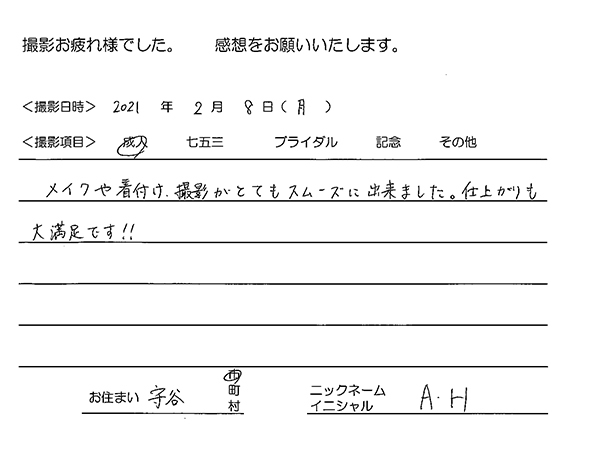 撮影お疲れ様でした。 感想をお願いいたします。
＜撮影日時＞ 2021 年 2 月 8 日(月)
＜撮影項目＞ 成人 七五三 ブライダル 記念 その他
メイクや着付け、撮影がとてもスムーズに出来ました。仕上がりも
大満足です!!
お住まい 守谷 市 町 村 ニックネーム イニシャル A・H